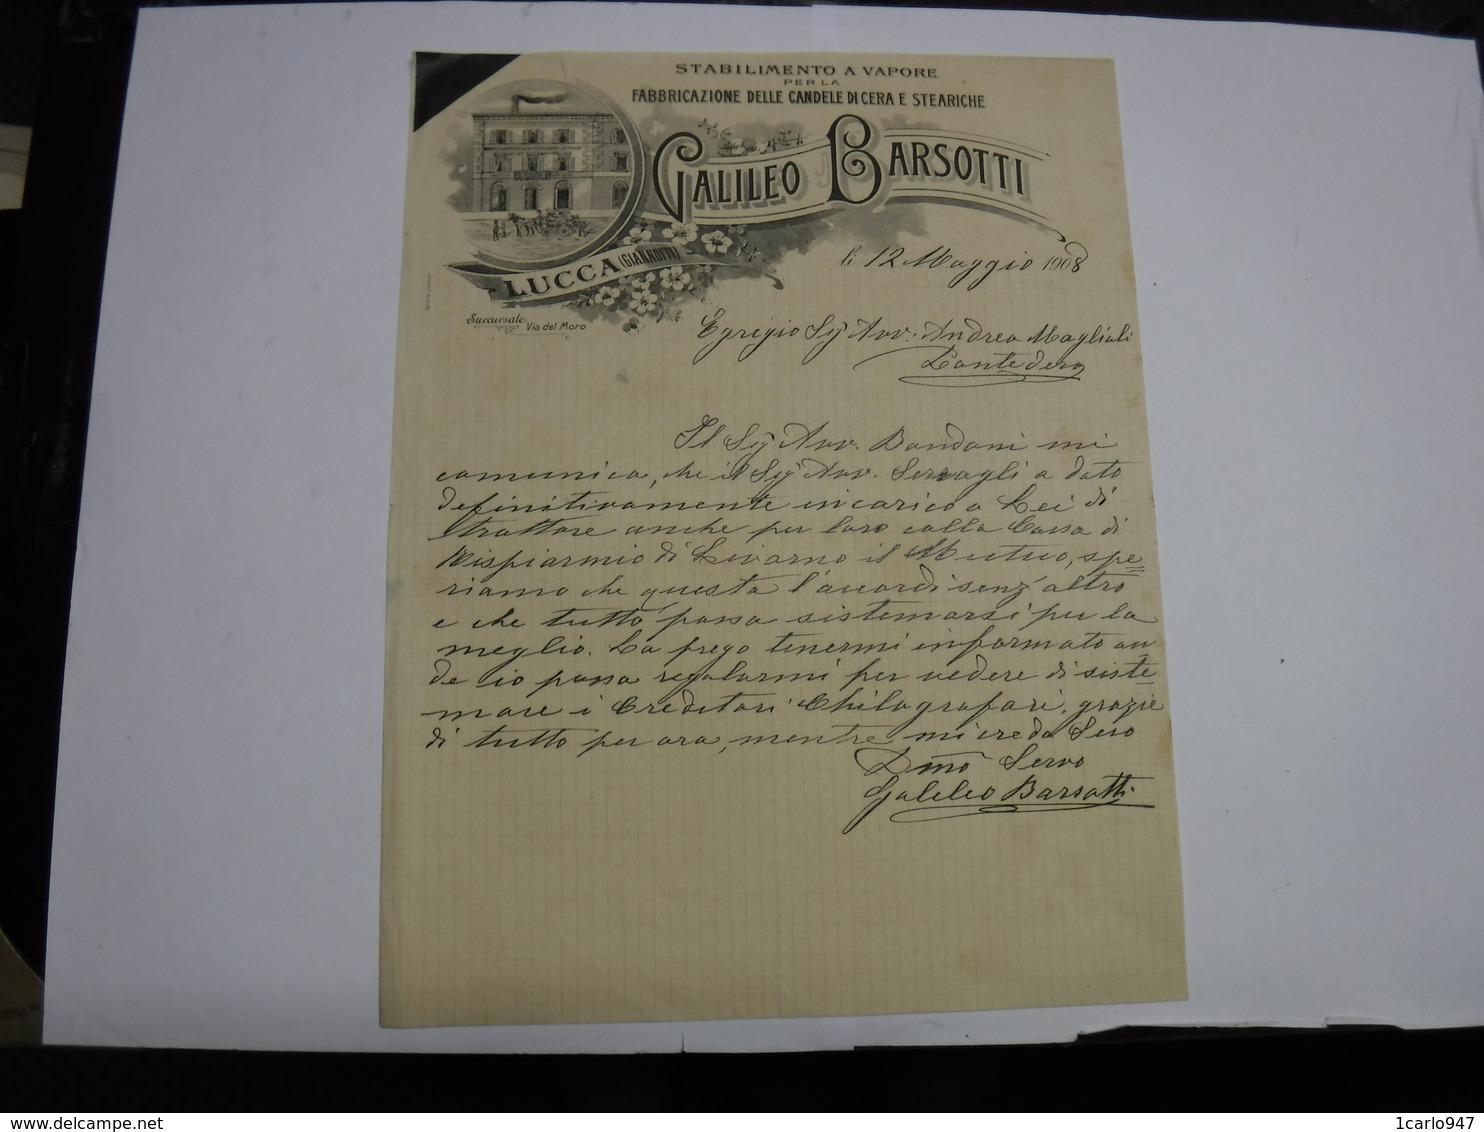 STABILIMENTO A VAPORE
PER LA
FABBRICAZIONE DELLE CANDELE DI CERA E STEARICHE
GALILEO BARSOTTI
LUCCA (GIANNOTTI)
Succursale Via del Moro
li 12 Maggio 1908
Egregio Sig Avv. Andrea Magliali
Pontedera
Il Sig Avv. Bandoni mi
comunica, che il Sig Avv. Sercagli a dato
definitivamente incarico a Lei di
trattare anche per loro colla Cassa di
Risparmio di Livorno il Mutuo, spe=
riamo che questa l'accordi senz' altro
e che tutto possa sistemarsi per la
meglio. La prego tenermi informato on
de io possa regolarmi per vedere di siste
mare i Creditori Chilografari, grazie
di tutto per ora, mentre mi creda Suo
Dmo Servo
Galileo Barsotti
delcampe.net
1carlo947